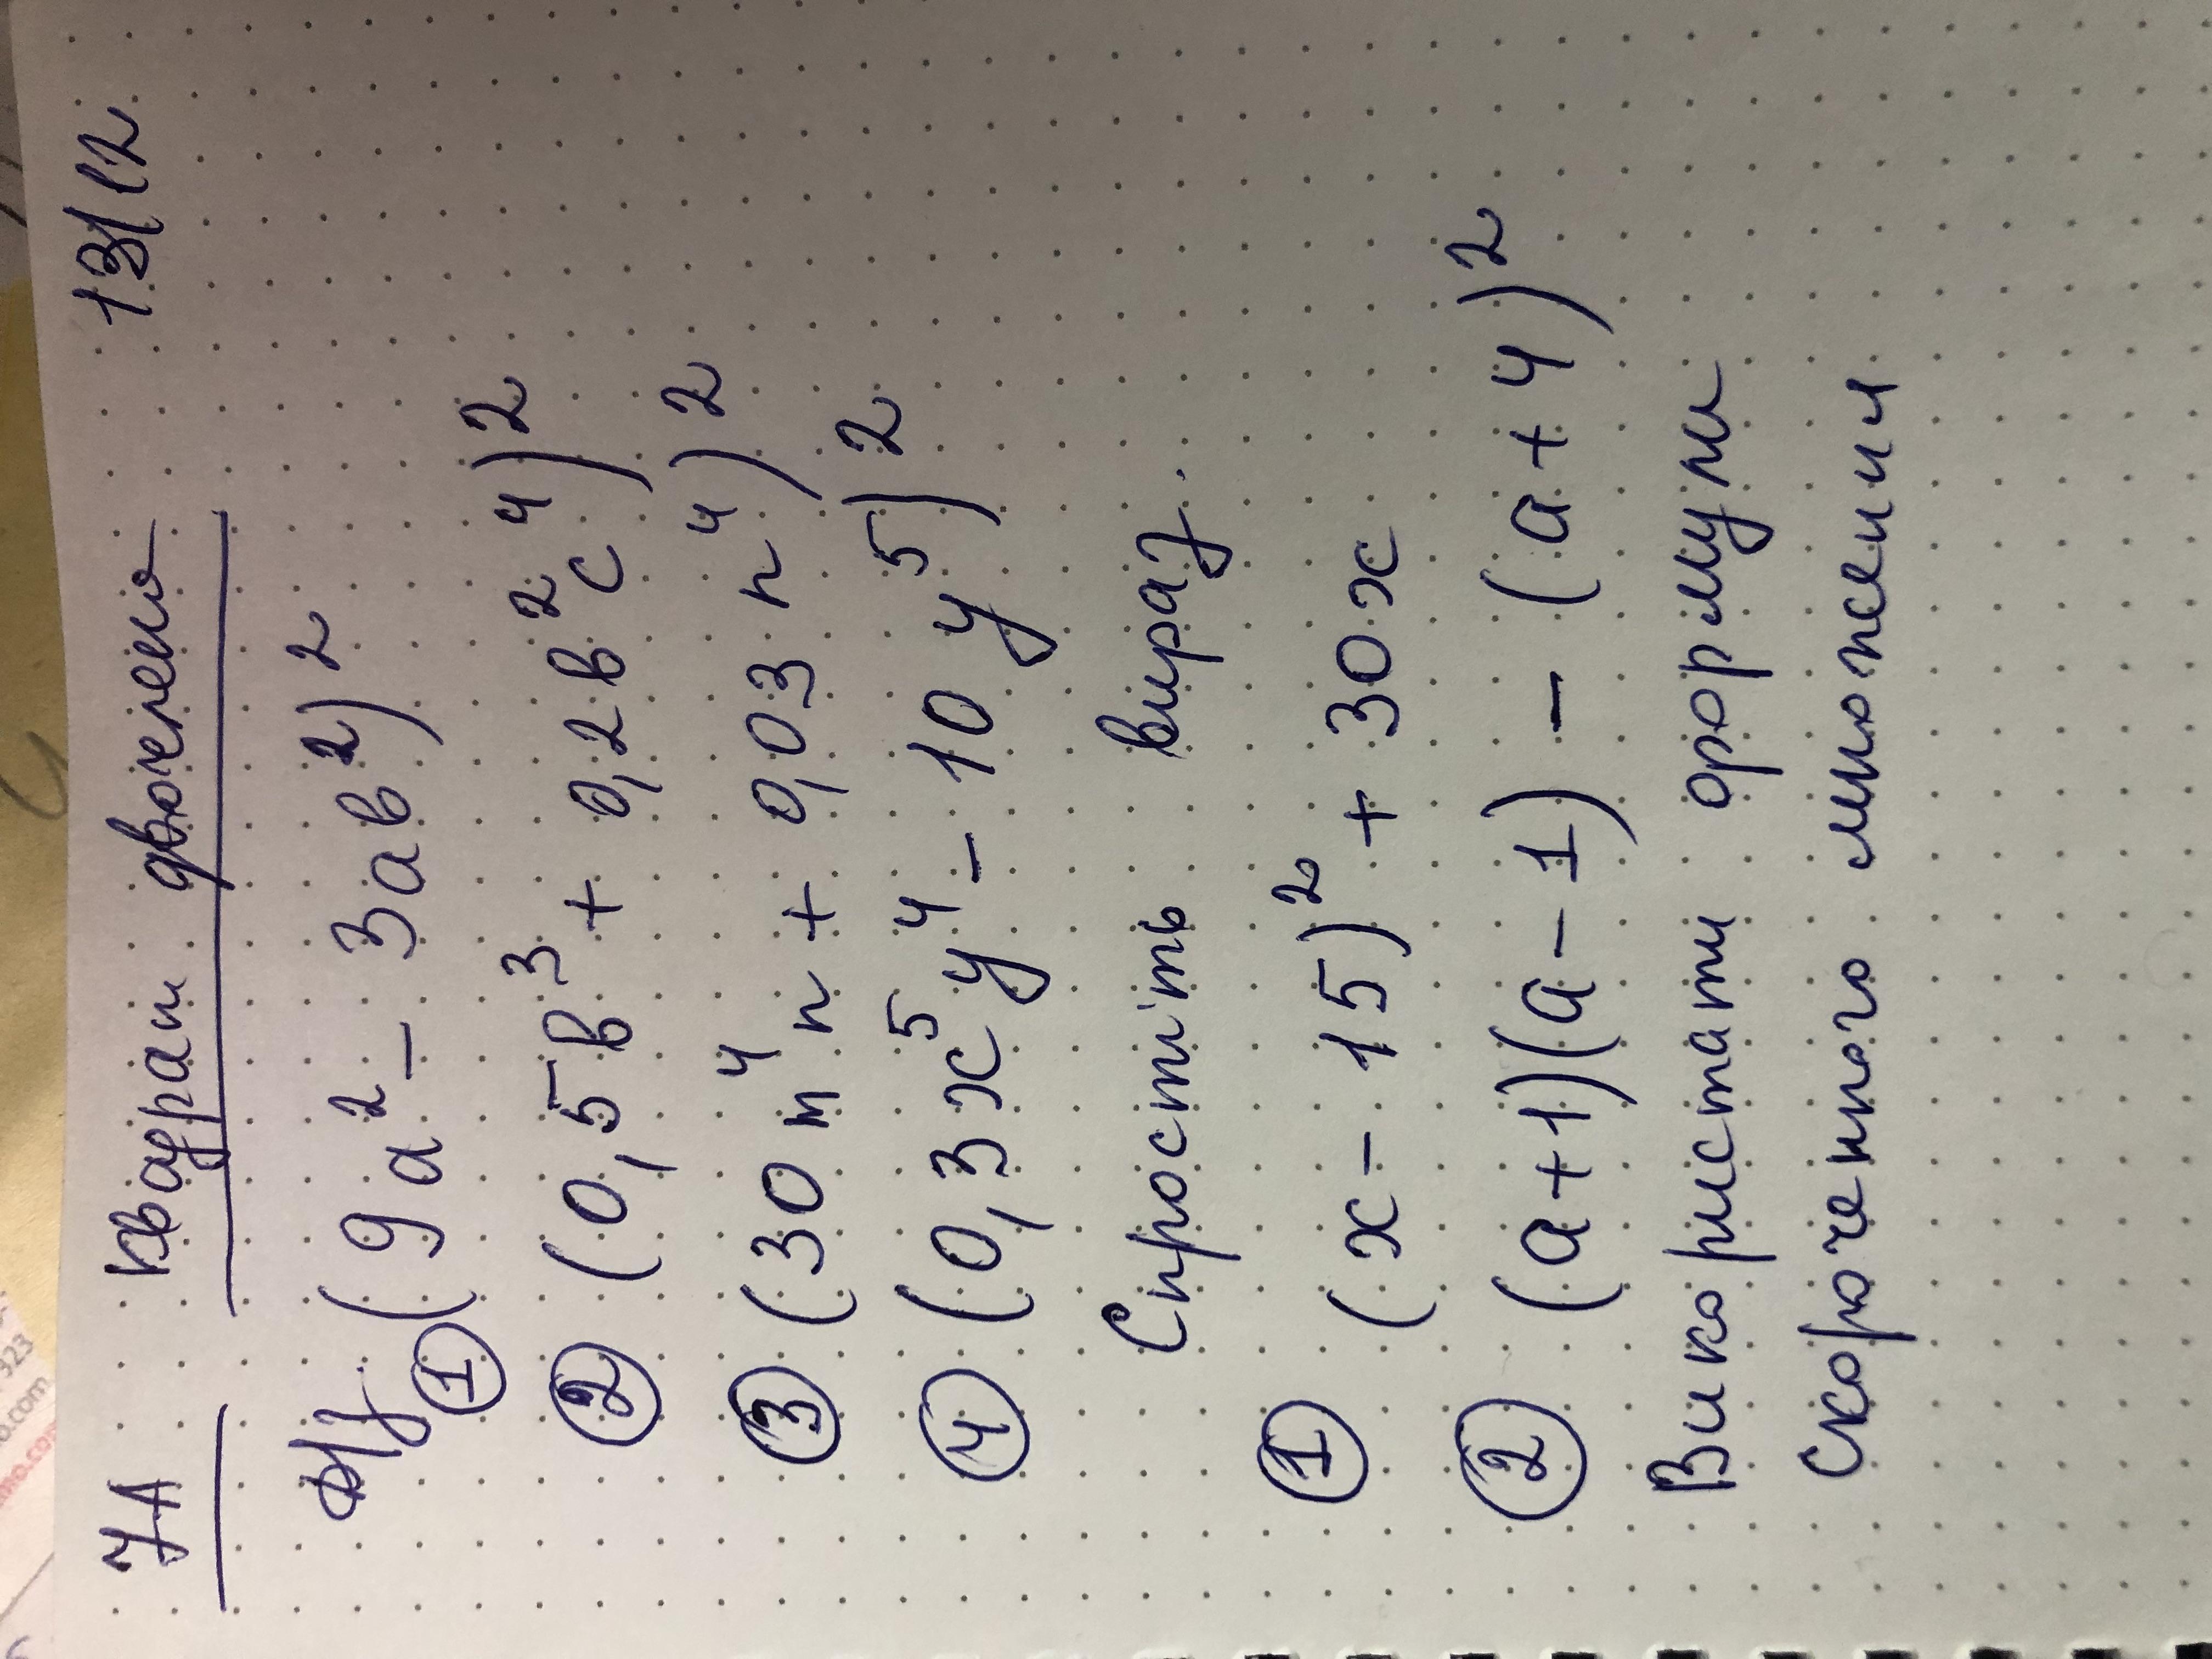 7А квадрат двочлена 13/12
д/з
① (9a² - 3ab²)²
② (0,5b³ + 0,2b²c⁴)²
③ (30m⁴n + 0,03n⁴)²
④ (0,3x⁵y⁴ - 10y⁵)²
Спростіть вираз.
① (x - 15)² + 30x
② (a+1)(a-1) - (a+4)²
Використати формули
скороченого множення
323